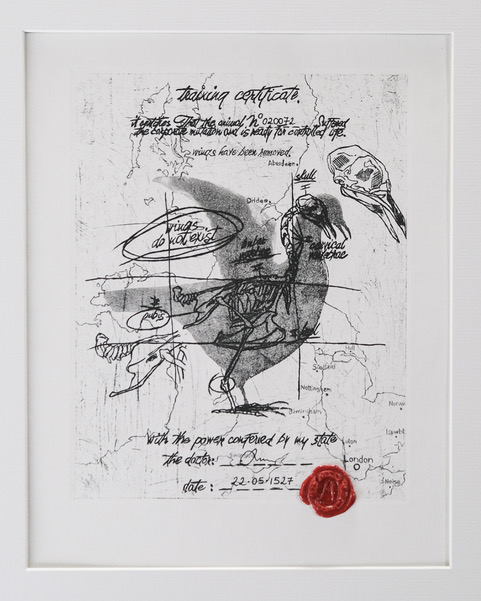 training certificate.
it certifies That the animal N° 020072 Suffered
the corporate mutation and is ready for controlled life.
wings have been removed.
Aberdeen
skull
Dundee
wings
do not exist
cervical
pubis
Nottingham
Birmingham
with the power conferred by my state
London
the doctor:
date: 22·05·1527